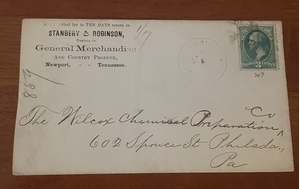 If not called for in TEN DAYS return to
STANBERY & ROBINSON,
DEALERS IN
General Merchandise
AND COUNTRY PRODUCE,
Newport, - - Tennessee.
1/7
889
The Wilcox Chemical Preparation Co
602 Spruce St Philada,
Pa